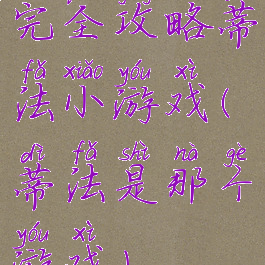 完全攻略蒂
fǎ xiǎo yóu xì
法小游戏(
dì fǎ shì nà gè
蒂法是那个
yóu xì
游戏)